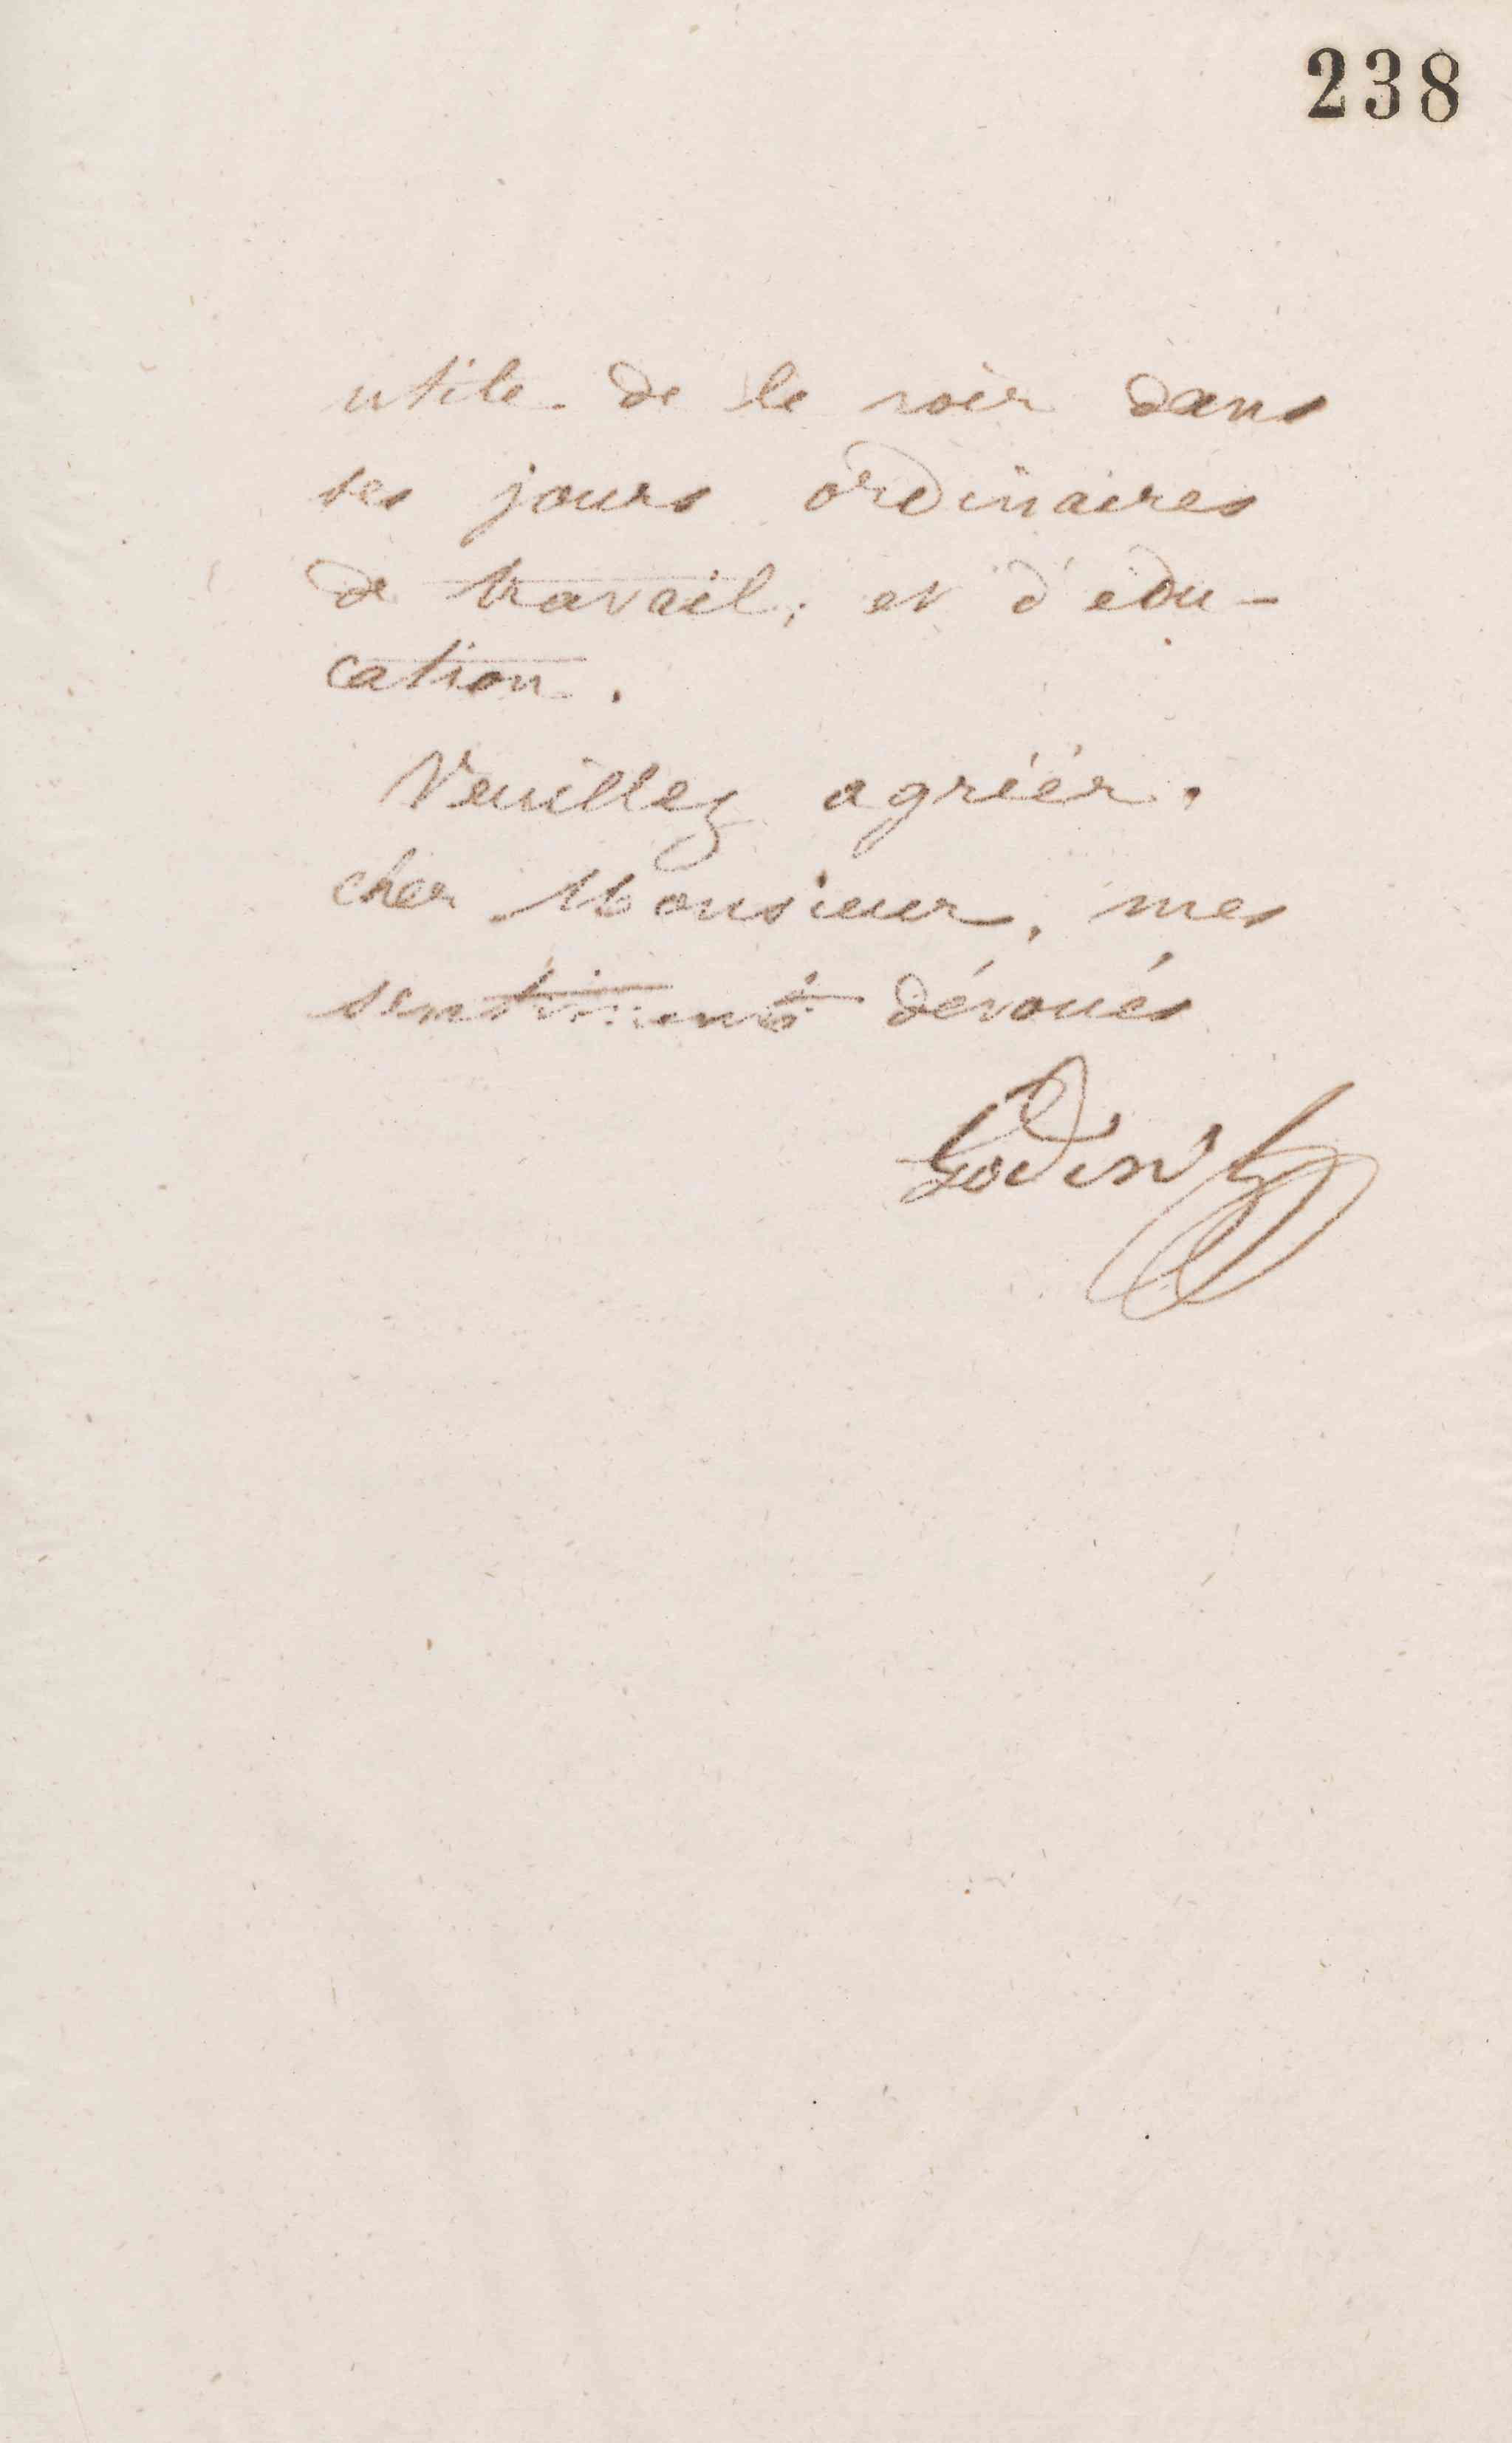 238
utile de le voir dans
ses jours ordinaires
de travail, et d'édu-
cation.
Veuillez agréér,
cher Monsieur, mes
sentiments dévoués
Godin